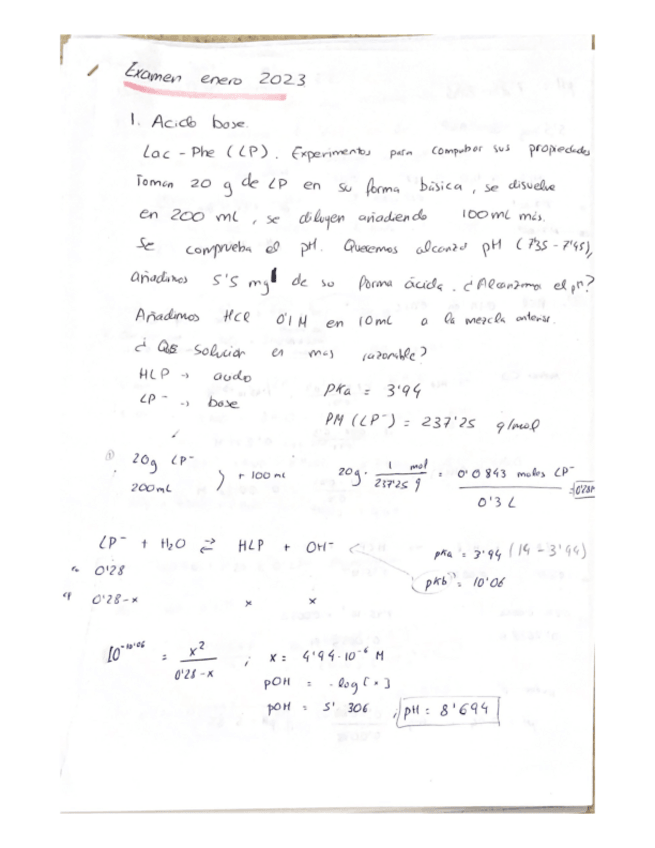 Examen enero 2023
1. Acido base.
Lac - Phe (LP). Experimentos para comprobar sus propiedades
Toman 20 g de LP en su forma básica, se disuelve
en 200 mL, se diluyen añadiendo 100 mL más.
Se comprueba el pH. Queremos alcanzar pH (7'35 - 7'45),
añadimos 5'5 mg de su forma ácida. ¿Alcanzamos el pH?
Añadimos HCl 0'1 M en 10 mL a la mezcla anterior.
¿ Qué solución es mas razonable?
HLP → acido
LP⁻ → base
pKa = 3'94
PM (LP⁻) = 237'25 g/mol
① 20g LP⁻
200 mL
) + 100 ml
20g · 1 mol / 237'25 g = 0'0843 moles LP⁻ / 0'3 L = 0'28M
LP⁻ + H₂O ⇌ HLP + OH⁻
0'28
0'28-x x x
pKa = 3'94 (14 - 3'94)
pKb = 10'06
10^-10'06 = x² / 0'28-x ; x = 4'94·10⁻⁶ M
pOH = -log [x]
pOH = 5'306, pH = 8'694